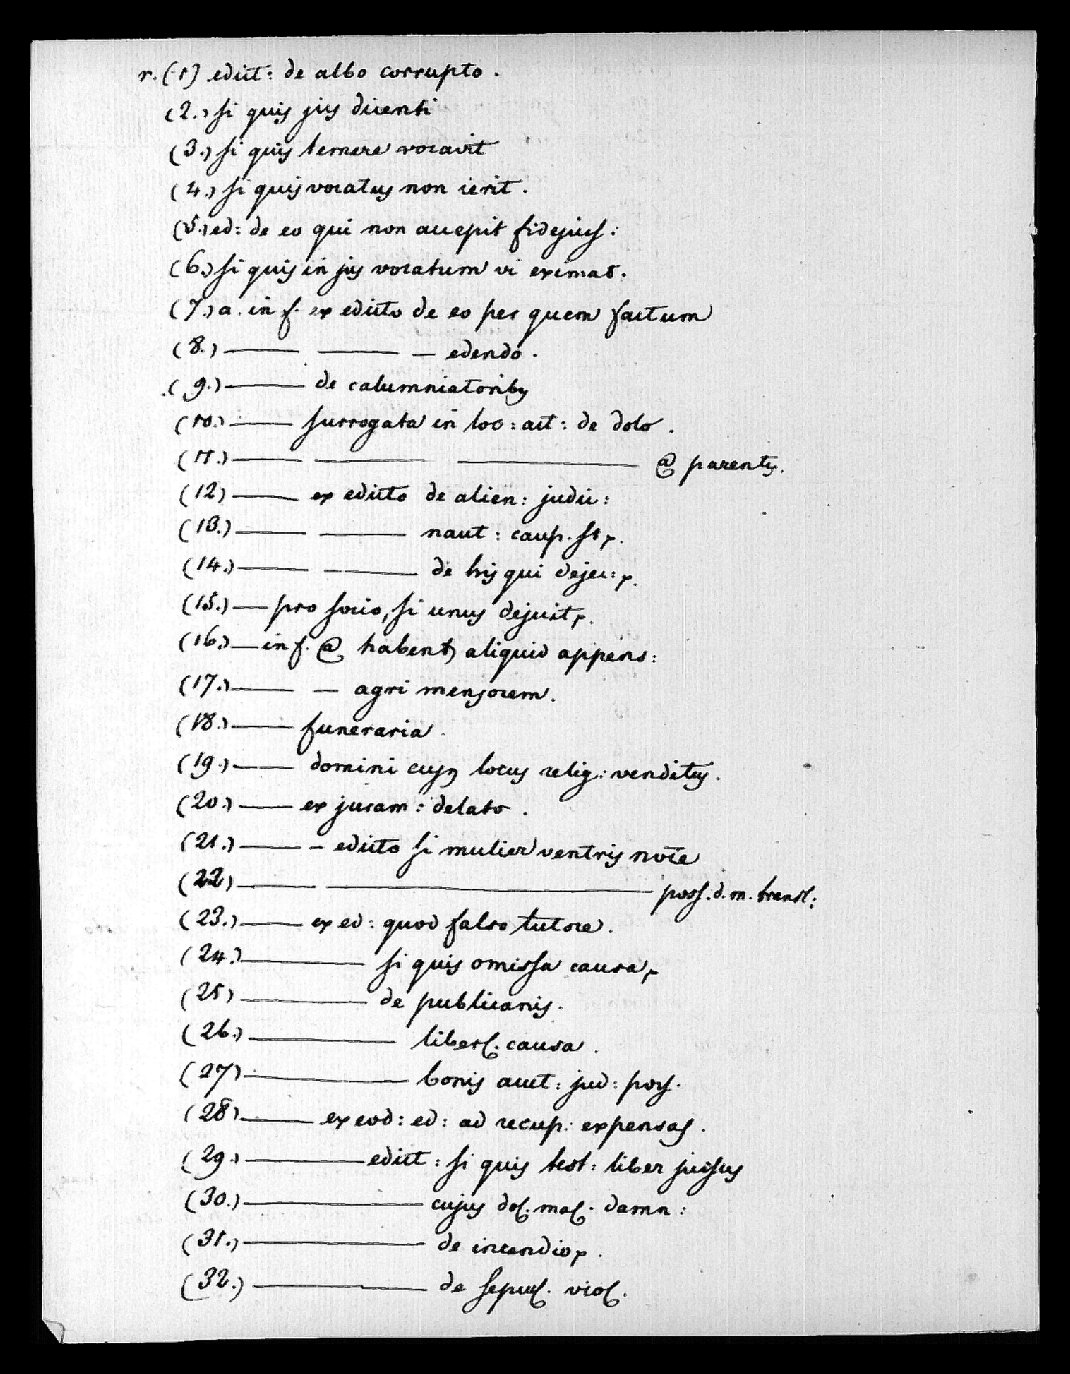 r. (1) edict: de albo corrupto.
(2.) si quis jus dicenti
(3.) si quis temere vocavit
(4.) si quis vocatus non ierit.
(5.) ed: de eo qui non accepit fidejus:
(6.) si quis in jus vocatum vi eximat.
(7.) a. in f. ex edicto de eo per quem factum
(8.) — — — edendo.
(9.) — de calumniatoribus
(10.) — surrogata in loc: act: de dolo.
(11.) — — — @ parentes.
(12) — ex edicto de alien: judic:
(13.) — — naut: caup. st
(14.) — — de his qui dejec:
(15.) — pro socio, si unus dejecit
(16.) — in f. @ habent aliquid appens:
(17.) — — agri mensorem.
(18.) — funeraria.
(19.) — domini cujus locus relig: venditus.
(20.) — ex juram: delato.
(21.) — – edicto si mulier ventris nōe
(22) — — poss. d. m. transl:
(23.) — ex ed: quod falso tutore.
(24.) — si quis omissa causa
(25) — de publicanis.
(26.) — liberl. causa.
(27) — bonis auct: jud: poss.
(28) — ex eod: ed: ad recup: expensas.
(29.) — edict: si quis test: liber jussus
(30.) — cujus dol. mal. damn:
(31.) — de incendio
(32.) — de sepul. viol.